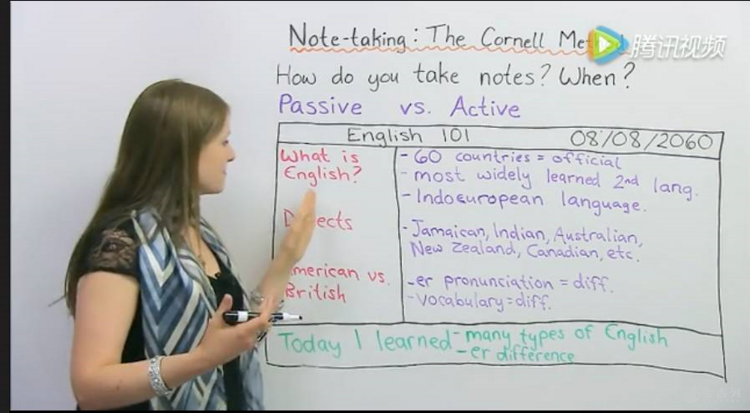 Note-taking: The Cornell
腾讯视频
How do you take notes? When?
Passive vs. Active
English 101 08/08/2060
What is
English?
- 60 countries = official
- most widely learned 2nd lang.
- Indoeuropean language.
- Jamaican, Indian, Australian,
New Zealand, Canadian, etc.
American vs.
British
-er pronunciation = diff.
- vocabulary = diff.
Today I learned - many types of English
-er difference